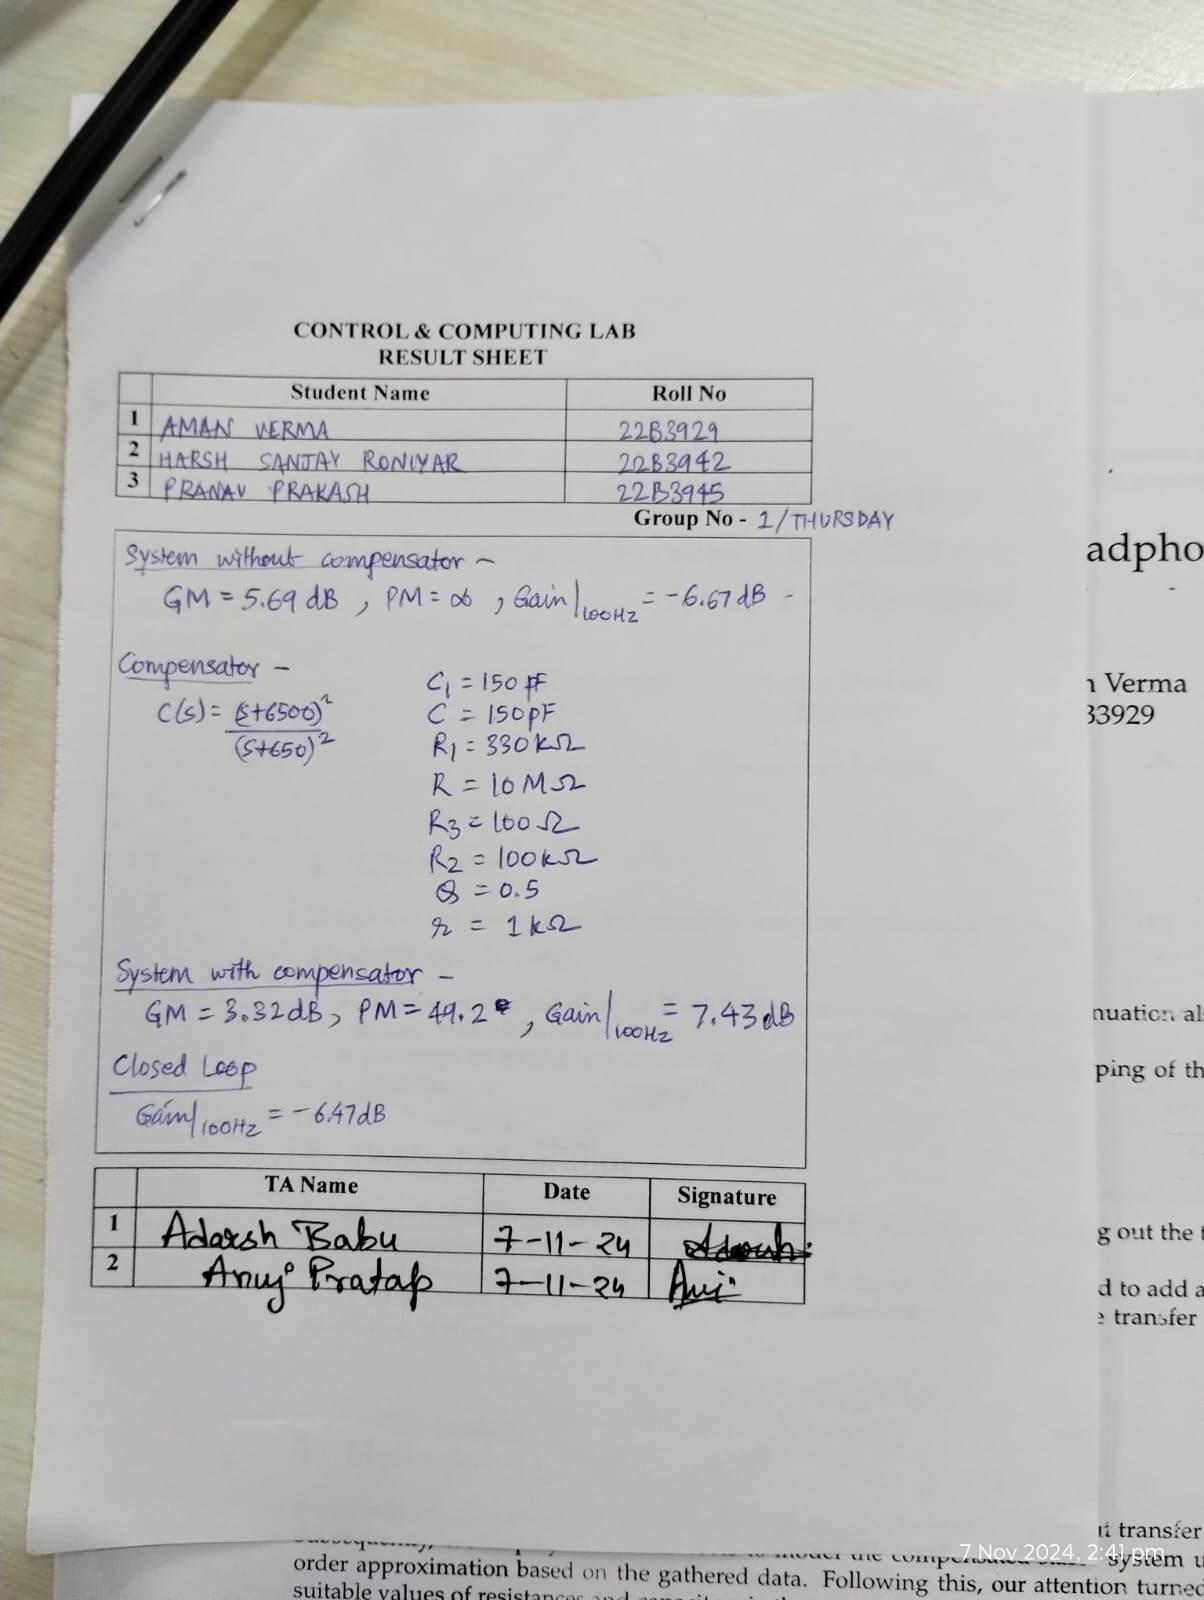 CONTROL & COMPUTING LAB
RESULT SHEET
Student Name Roll No
1 AMAN VERMA 22B3929
2 HARSH SANJAY RONIYAR 22B3942
3 PRANAV PRAKASH 22B3945
Group No - 1/THURSDAY
System without compensator -
GM = 5.69 dB , PM = ∞ , Gain|100Hz = -6.67 dB -
Compensator -
C(s) = (s+6500)²/(s+650)²
C1 = 150 pF
C = 150pF
R1 = 330 kΩ
R = 10 MΩ
R3 = 100 Ω
R2 = 100kΩ
Q = 0.5
r = 1 kΩ
System with compensator -
GM = 3.32dB, PM = 49.2°, Gain|100Hz = 7.43 dB
Closed Loop
Gain|100Hz = -6.47dB
TA Name Date Signature
1 Adarsh Babu 7-11-24 Adarsh
2 Anuj Pratap 7-11-24 Anuj
adpho
Verma
33929
nuation al
ping of th
g out the
d to add a
transfer
transfer
system u
order approximation based on the gathered data. Following this, our attention turned
suitable values of resistances and
7 Nov 2024, 2:41 pm